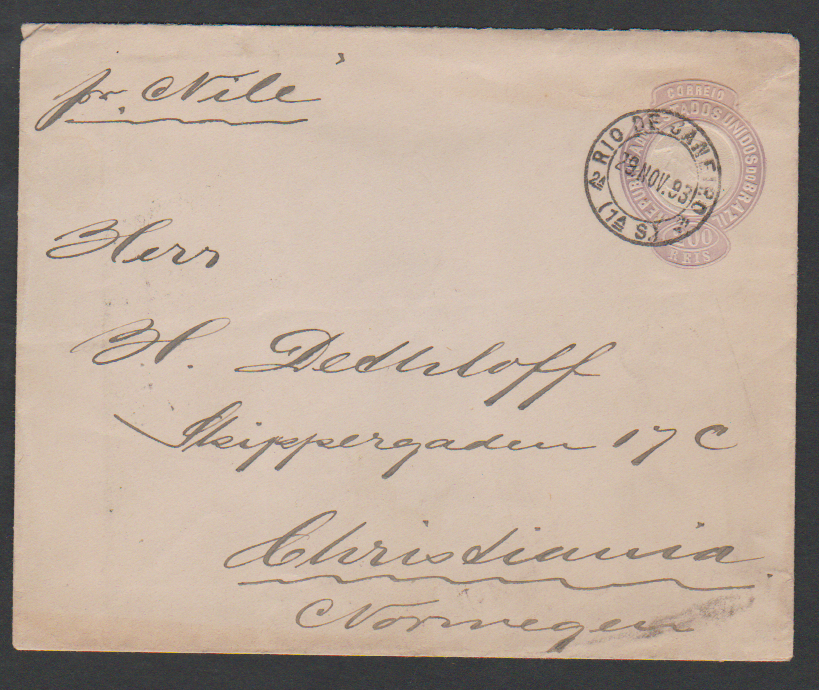 pr. "Nile"
CORREIO
ESTADOS UNIDOS DO BRAZIL
REIS
RIO DE JANEIRO
29 NOV. 93
2ª (1ª S.) 2ª
Herr
H. Dethloff
Skippergaden 17 C
Christiania
Norwegen